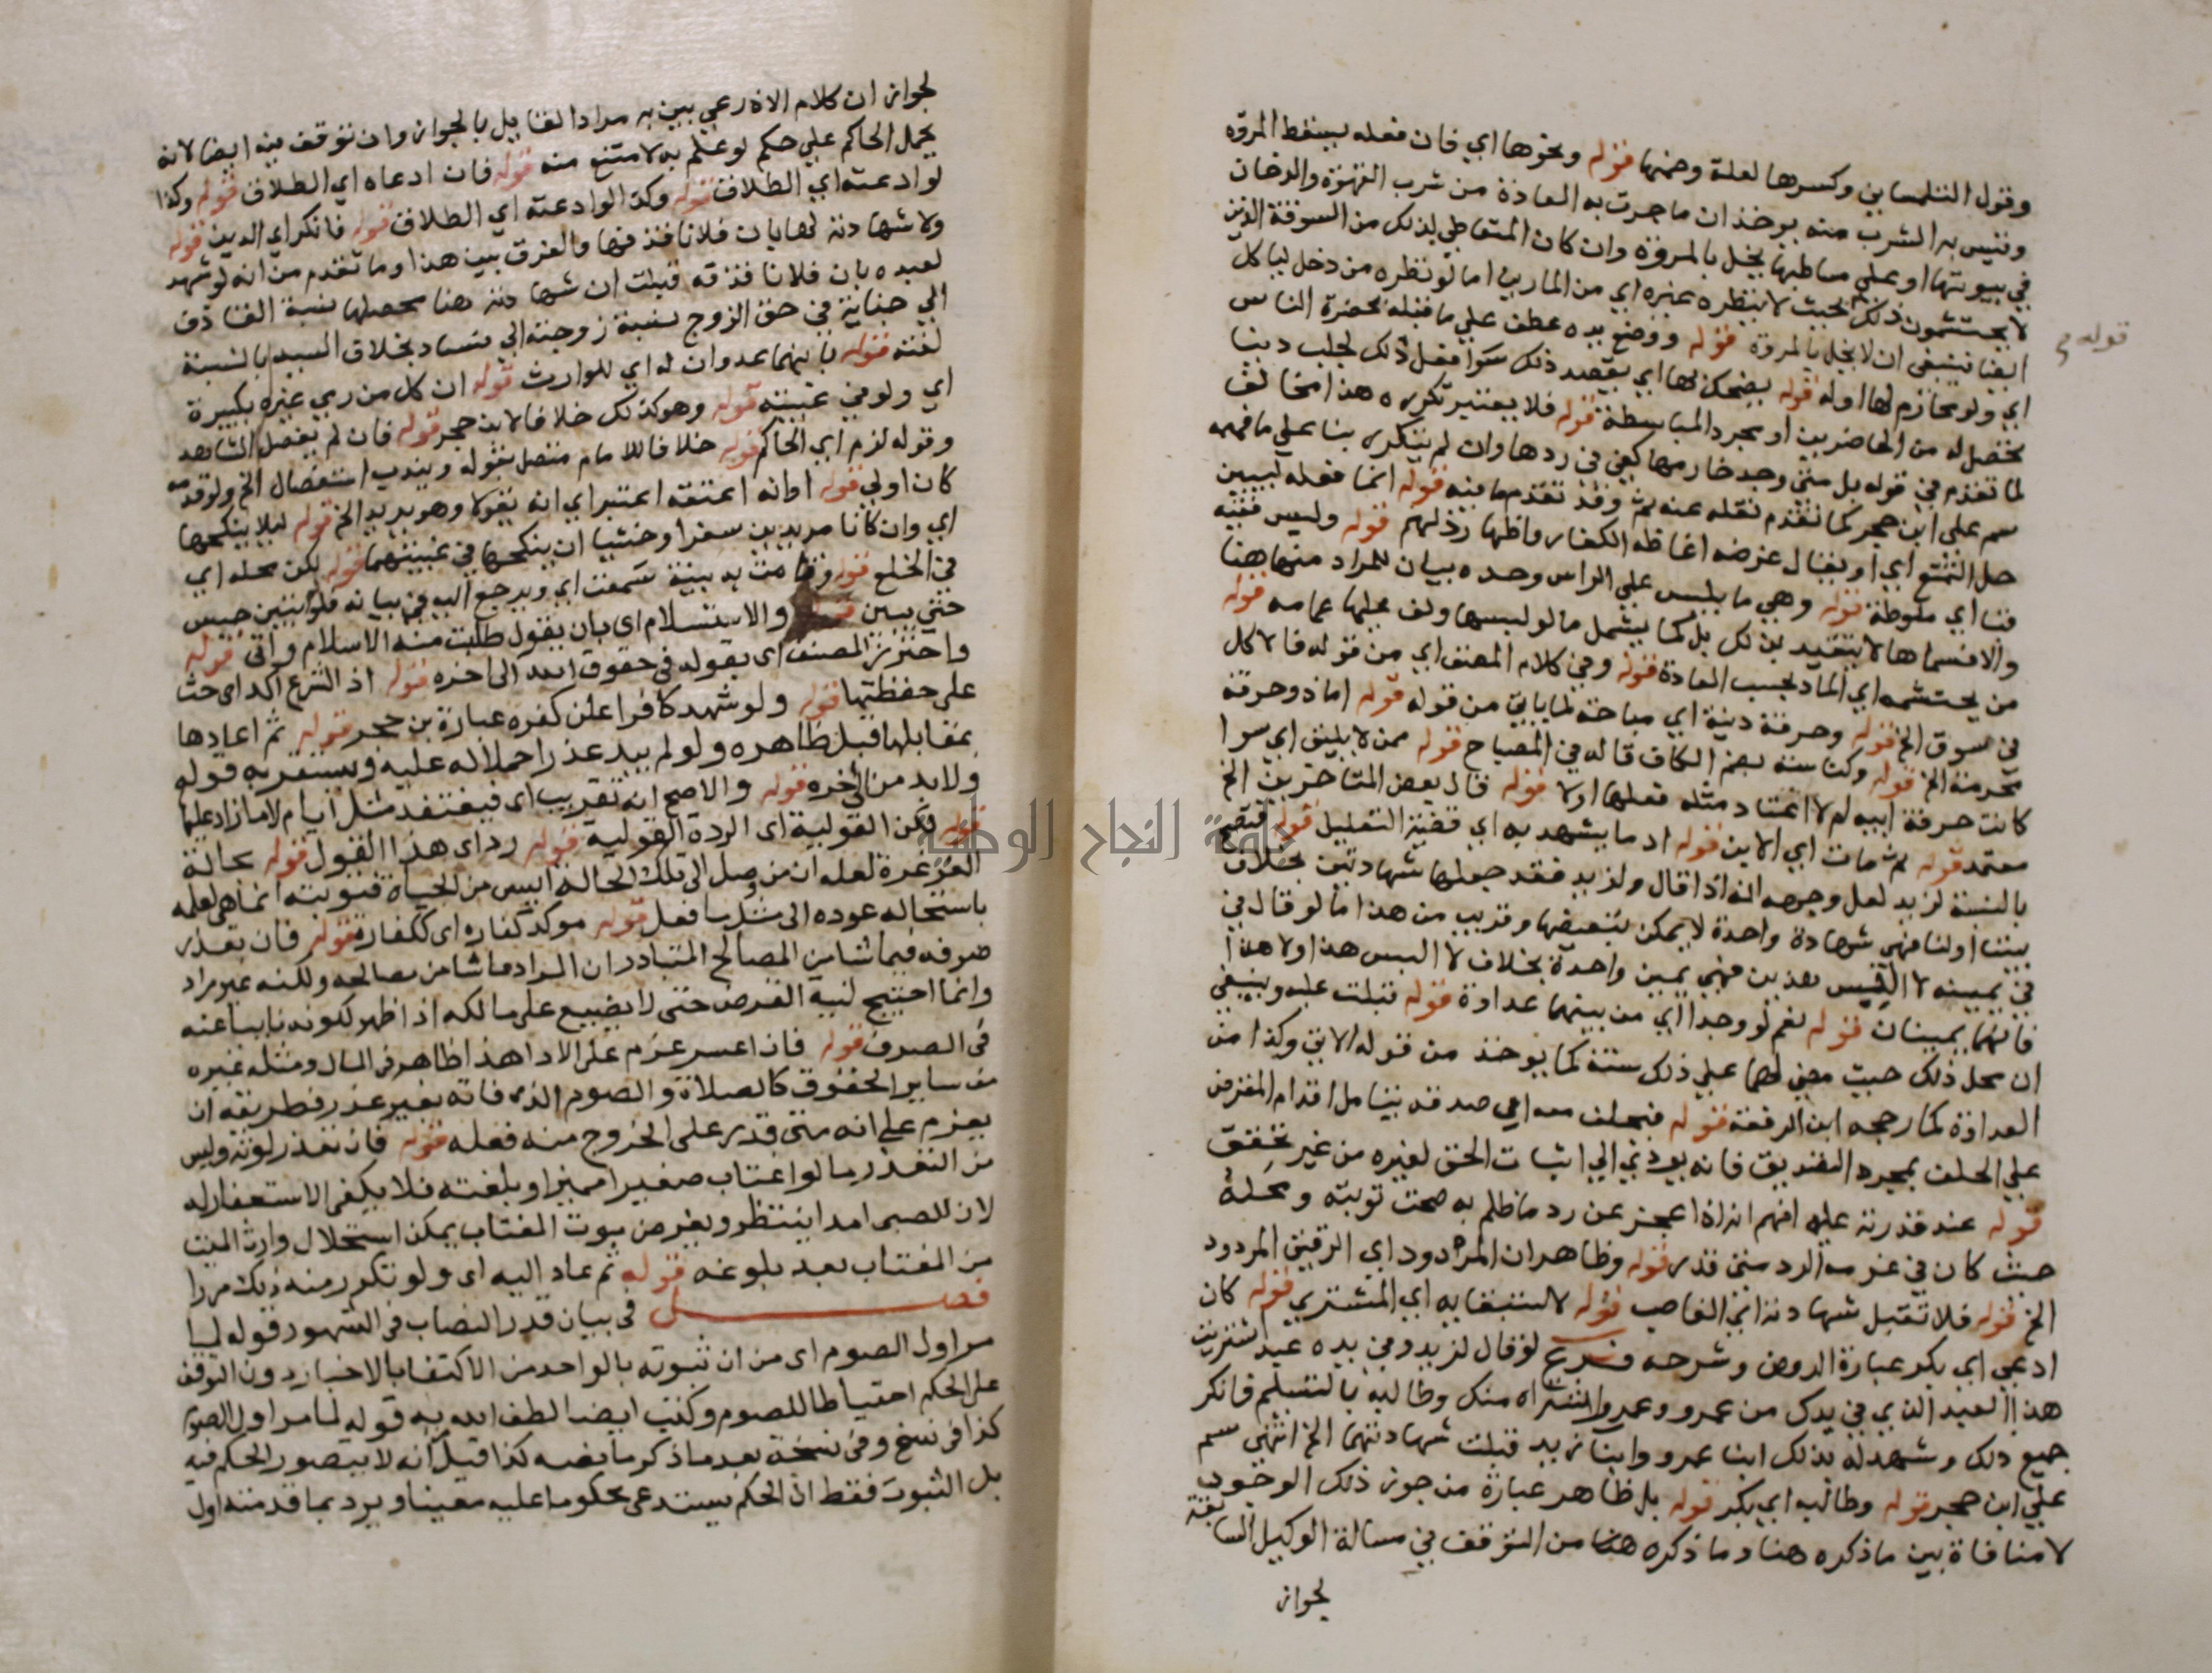 وقول التلمساني وكسرها لعلة وضمها قوله ونحوها اي فان فعله يسقط المروة
وقيس به الشرب منه يوخذ ان ما جرت به العادة من شرب القهوة والدخان
في بيوتها او على مساطبها يخل بالمروة وان كان المتعاطي لذلك من السوقة الذين
لا يحتشمون ذلك بحيث لا ينظره غيره اي من المارين اما لو نظره من دخل لياكل
ايضا فينبغي ان لا يخل بالمروة قوله ووضع يده عطف على ما قبله بحضرة الناس
قوله م
اي ولو محارم لها او له قوله يضحك بها اي يقصد ذلك سوا فعل ذلك لجلب دنيا
تحصل له من الحاضرين او مجرد المباسطة قوله فلا يعتبر تكرره هذا مخالف
لما تقدم في قوله بل متى وجد خارمها كفى في ردها وان لم يتكرر بنا على ما فهمه
سم على ابن حجر كما تقدم نقله عنه ثم وقد تقدم ما فيه قوله انما فعله ليبين
حل التمتع اي او يقال غرضه اغاظة الكفار واظهار ذلهم قوله وليس فقيه
قبا اي ملوطة قوله وهي ما يلبس على الراس وحده بيان للمراد منها هنا
والا فمسماها لا يتقيد بذلك بل كما يشمل ما لو لبسها ولف عليها عمامه قوله
من يحتشمه اي الماد بحسب العادة قوله وفي كلام المصنف اي من قوله فالاكل
في سوق الخ قوله وحرفة دنية اي مباحة لما ياتي من قوله اما ذو حرفة
محرمة الخ قوله وكناسته بضم الكاف قاله في المصباح قوله ممن لا يليق اي سوا
كانت حرفة ابيه ام لا اعتاد مثله فعلها اولا قوله قال بعض المتاخرين الخ
معتمد قوله ثم مات اي الابن قوله اد ما يشهد به اي قضية التعليل قوله فتصح
بالنسبة لزيد لعل وجهه انه اذا قال ولزيد فقد جعلها شهادتين بخلاف
بيننا او لنا فهي شهادة واحدة لا يمكن تبعيضها وقريب من هذا ما لو قال في
في يمينه لا البس هذين فهي يمين واحدة بخلاف لا البس هذا ولا هذا
فانهما يمينان قوله نعم لو وجدا اي من بينهما عداوة قوله قبلت عليه وينبغي
ان محل ذلك حيث مضى لهما على ذلك سنة كما يوخذ من قوله الاتي وكذا من
العداوة كما رجحه ابن الرفعة قوله فيحلف معه اي صدقه يتامل اقدام المقرض
على الحلف بمجرد التصديق فانه يودي الى اثبات الحق لغيره من غير تحقق
قوله عند قدرته عليه افهم انه اذا عجز عن رد ما ظلم به صحت توبته ومحله
حيث كان في عزمه الرد متى قدر قوله وظاهر ان المردود اي الرقيق المردود
الخ قوله فلا تقبل شهادته اي الغاصب قوله لاستيفا به اي المشتري قوله كان
ادعى اي بكر عبارة الروض وشرحه فرع لو قال لزيد وفي يده عبد اشتريت
هذا العبد الذي في يدك من عمرو وعمرو اشتراه منك وطالبه بالتسليم فانكر
جميع ذلك وشهد له بذلك ابنا عمرو وابنا زيد قبلت شهادتهما الخ انتهى سم
على ابن حجر قوله وطالب اي بكر قوله بل ظاهر عبارة من جوز ذلك الوجوب
لا منافاة بين ما ذكره هنا وما ذكره هنا من التوقف في مسالة الوكيل السابقة
لجواز
لجواز ان كلام الاذرعي بين به مراد القايل بالجواز وان توقف فيه ايضا لانه
يحمل الحاكم على حكم لو علم به لامتنع منه قوله فان ادعاه اي الطلاق قوله وكذا
لو ادعته اي الطلاق قوله وكذا لو ادعته اي الطلاق قوله فانكر اي الدين قوله
ولا شهادته لها بان فلانا قذفها والفرق بين هذا وما تقدم من انه لو شهد
لعبده بان فلانا قذفه قبلت ان شهادته هنا محصلها نسبة القاذف
الى جناية في حق الزوج لنسبة زوجته الى فساد بخلاف السيد بالنسبة
لقنه قوله بانهما عدوان له اي للوارث قوله ان كل من رمى غيره بكبيرة
اي ولو في غيبته قوله وهو كذلك خلافا لابن حجر قوله فان لم يفصل الشاهد
وقوله لزم اي الحاكم قوله خلافا للامام متصل بقوله ويندب استفصال الخ ولو قدمه
كان اولى قوله او انه اعتقه اعتبر اي انه يقولا وهو يريد الخ قوله ليلا ينكحها
اي وان كانا مريدين سفرا وخشيا ان ينكحها في غيبتهما قوله لكن محله اي
في الخلع قوله وقامت به بينة سمعت اي ويرجع اليه في بيانه فلو بين حبس
حتى يبين قوله والاستسلام اى بان يقول طلبت منه الاسلام واتى قوله
واحترز المصنف اى بقوله في حقوق الله الى اخره قوله اذ الشرع اكد اى حث
على حفظها قوله ولو شهد كافر اعلن كفره عبارة بن حجر قوله ثم اعادها
بمقابلها قبل ظاهره ولو لم يبد عذرا حملا له عليه ويستقر به قوله
ولا بد من الى اخره قوله والاصح انه تقريب اى فيغتفد مثل ايام لا ما زاد عليها
قوله لكن القولية اى الردة القولية قوله رد اى هذا القول قوله بحالة
الغرغرة لعله ان من وصل الى تلك الحالة ايس من الحياة فتوبته انما هي لعلمه
باستحالة عوده الى مثل ما فعل قوله موكد كفاره اى ككفارة قوله فان تعذر
صرفه فيما شا من المصالح المتبادر ان المراد ما شا من مصالحه ولكنه غير مراد
وانما احتيج لنية القرض حتى لا يضيع على مالكه اذا ظهر لكونه نايبا عنه
فى الصرف قوله فان اعسر عزم على الادا هذا ظاهر فى المال ومثله غيره
من ساير الحقوق كالصلاة والصوم الذى فاته بغير عذر فطريقه ان
يعزم على انه متى قدر على الخروج منه فعله قوله فان تعذر لموته وليس
من التعذر ما لو اغتاب صغيرا مميزا وبلغته فلا يكفى الاستغفار له
لان للصبى امدا ينتظر وبفرض موت المغتاب يمكن استحلال وارث الميت
من المغتاب بعد بلوغه قوله ثم عاد اليه اى ولو تكرر منه ذلك مرارا
فصل فى بيان قدر النصاب فى الشهود قوله لما
مر اول الصوم اى من ان ثبوته بالواحد من الاكتفا بالاخبار دون التوقف
على الحكم احتياطا للصوم وكتب ايضا لطف الله به قوله لما مر اول الصوم
كذا فى نسخ وفى نسخة بعد ما ذكر ما نصه كذا قيل انه لا يتصور الحكم فيه
بل الثبوت فقط لان الحكم يستدعى محكوما عليه معينا ويرد بما قدمته اول
جامعة النجاح الوطنية